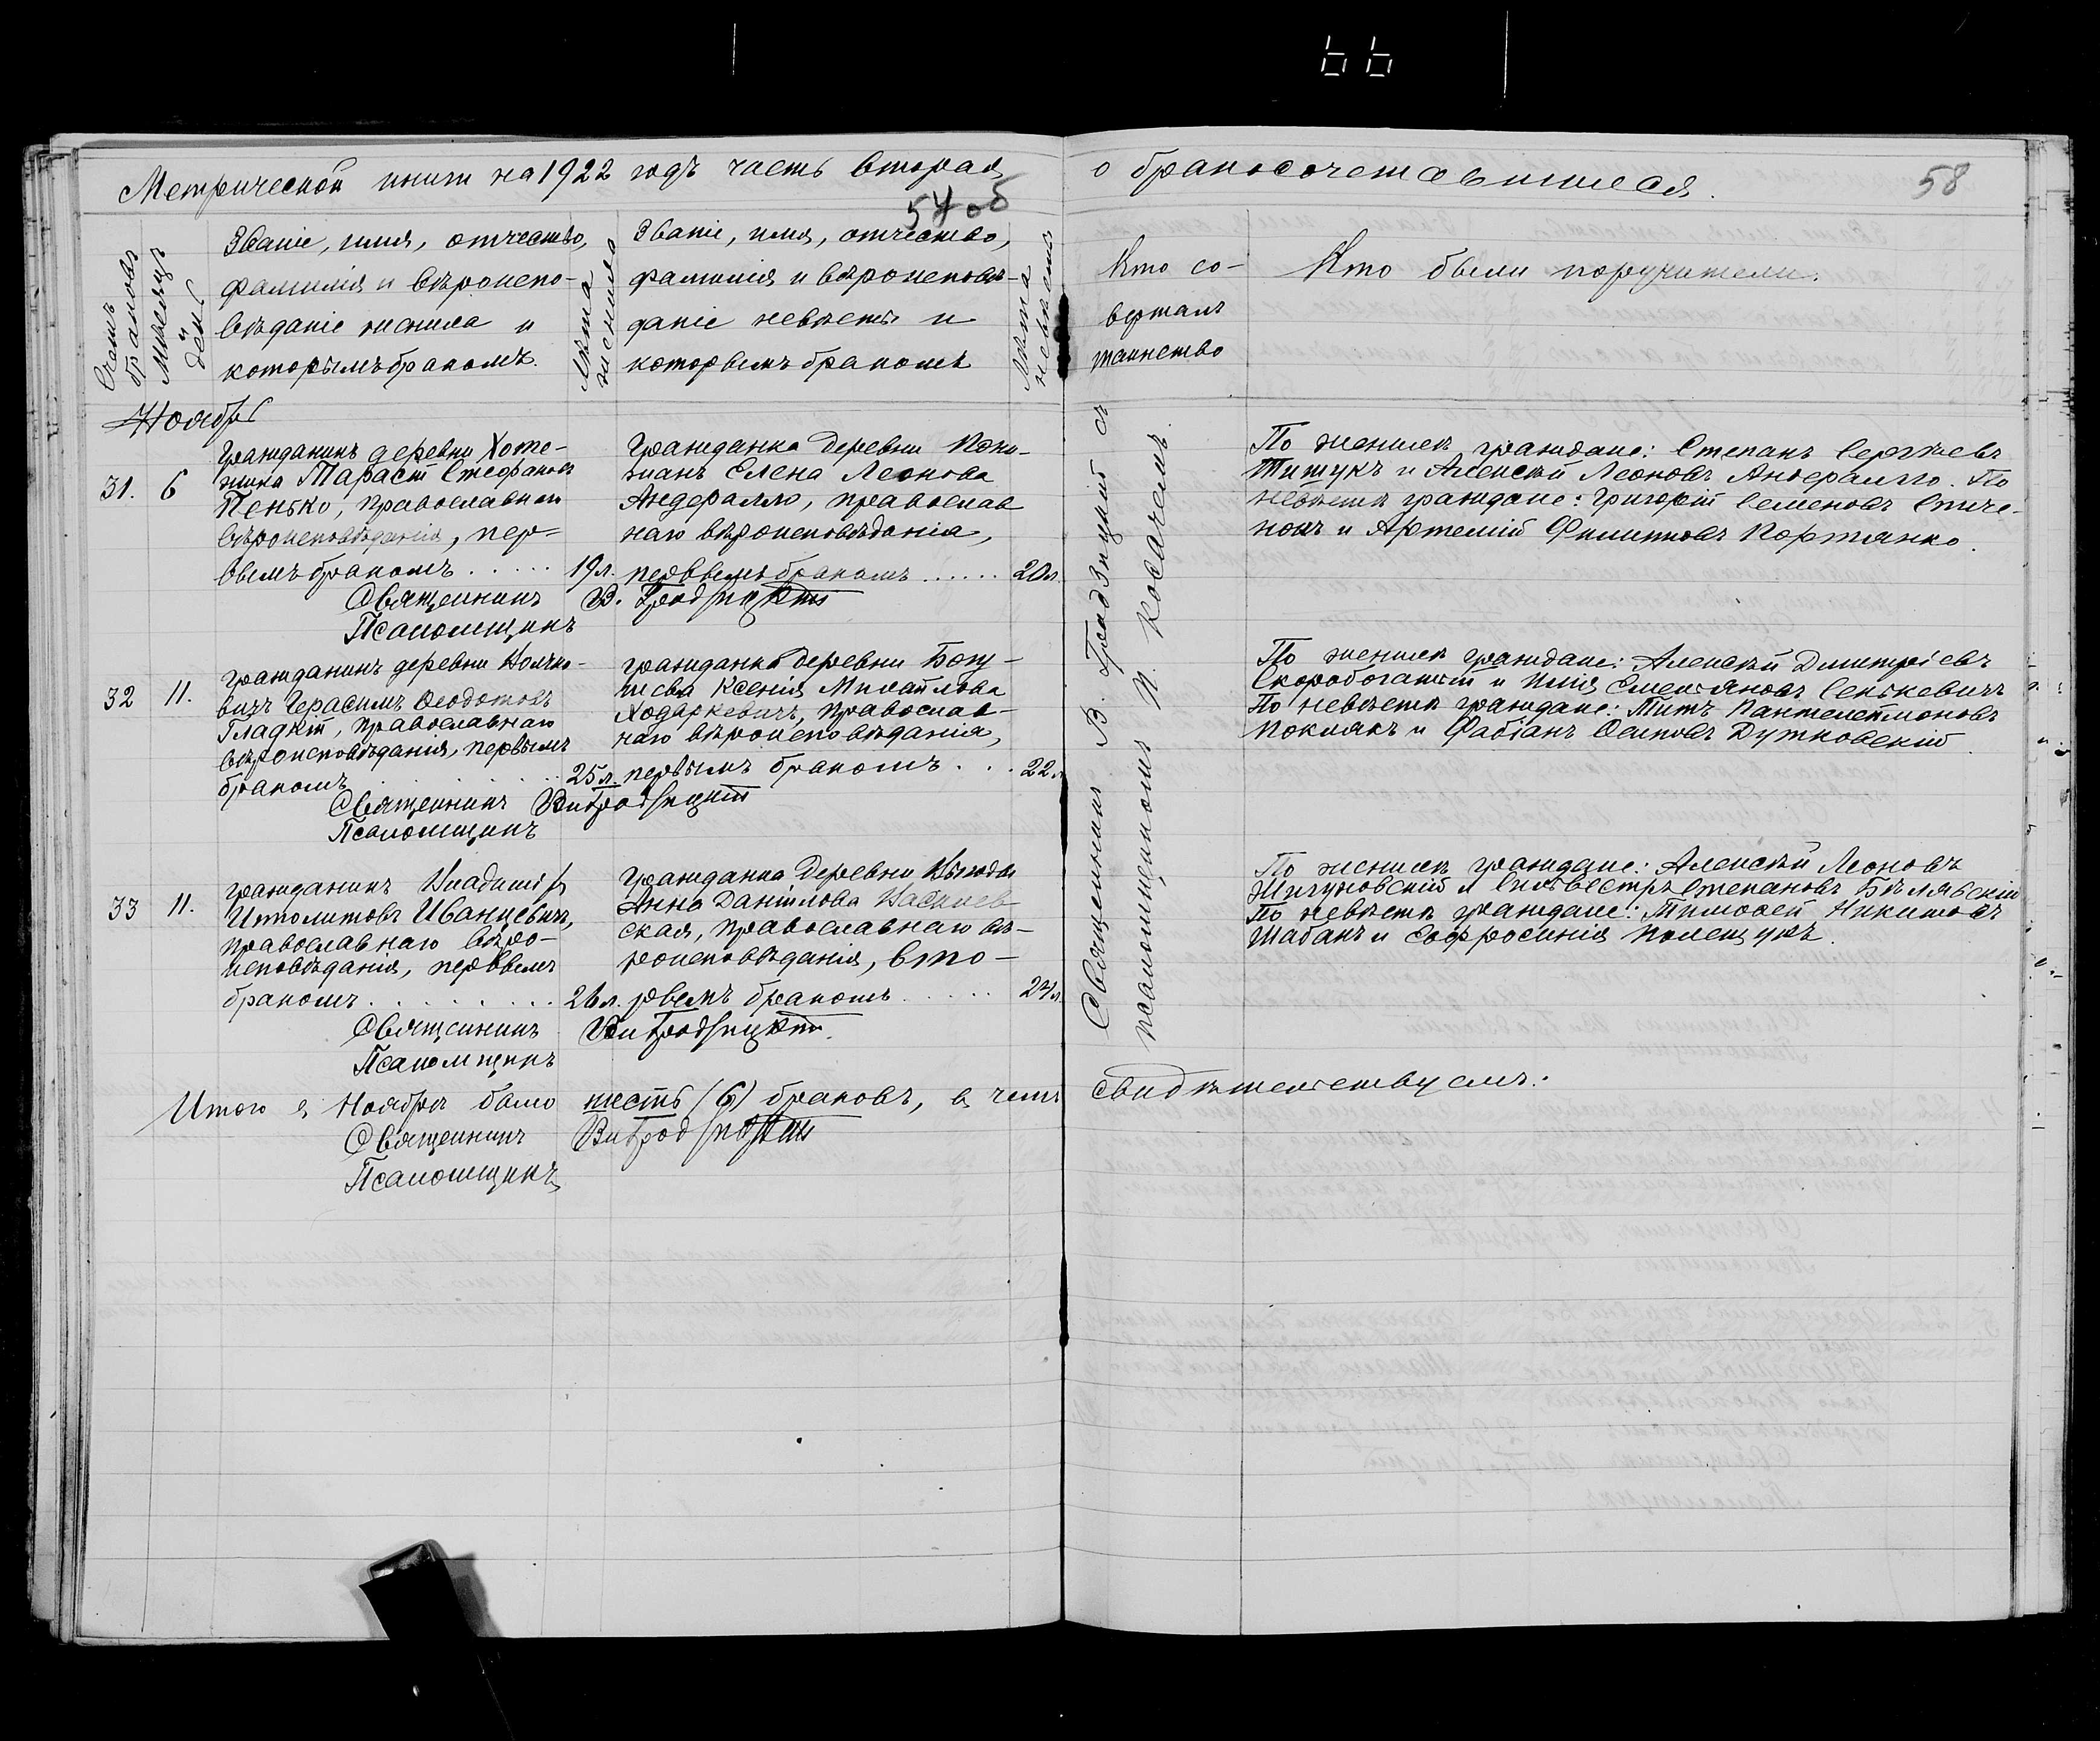 66
Метрической книги на 1922 годъ часть вторая
о бракосочетавшихся.
58
54 об
Счетъ браковъ
Мѣсяцъ и день
Званіе, имя, отчество,
фамилія и вѣроиспо-
вѣданіе жениха и
которымъ бракомъ.
Лѣта жениха
Званіе, имя, отчество,
фамилія и вѣроисповѣ-
даніе невѣсты и
которымъ бракомъ
Лѣта невѣсты
Кто со-
вершалъ
таинство
Кто были поручители.
Ноябрь
31. 6
Гражданинъ деревни Хоте-
Тарасій Стефановъ
Пенько, православнаго
вѣроисповѣданія, пер-
вымъ бракомъ . . . . . 19 л.
Гражданка деревни
Елена Леонова
Андералло, православ
наго вѣроисповѣданія,
первымъ бракомъ . . . . . . 20 л.
Священникъ В. Градзицкій
Псаломщикъ
По женихѣ граждане: Степанъ Сергѣевъ
Титукъ и Алексѣй Леоновъ Андералло. По
невѣстѣ граждане: Григорій Семеновъ
и Артемій Филиповъ Портянко.
32 11.
гражданинъ деревни Колчи-
вичъ Герасимъ Ѳеодотовъ
Гладкій, православнаго
вѣроисповѣданія, первымъ
бракомъ . . . . . . . 25 л.
гражданка деревни Богу-
Ксенія Михайлова
Ходаркевичъ, православ-
наго вѣроисповѣданія,
первымъ бракомъ . . . 22 л
Священникъ Ви Градзицкій
Псаломщикъ
По женихѣ граждане: Алексѣй Димитріевъ
Скоробогатый и Илія Емельяновъ Сенькевичъ
По невѣстѣ граждане: Титъ Пантелеймоновъ
Поклякъ и Фабіанъ Осиповъ Дутковскій.
33 11.
гражданинъ Владиміръ
Ипполитовъ Иванцевичъ,
православнаго вѣро-
исповѣданія, первымъ
бракомъ . . . . . . . . . 26 л.
гражданка деревни
Анна Даніилова
ская, православнаго вѣ-
роисповѣданія, вто-
рымъ бракомъ . . . . . . 24 л
Священникъ Ви Градзицкій.
Псаломщикъ
По женихѣ граждане: Алексѣй Леоновъ
Жигуновскій и Сильвестръ Степановъ Бѣлявскій
По невѣстѣ граждане: Тимофей Никитовъ
Шабанъ и Евфросинія Полещукъ.
Священникъ В. Градзицкій съ
псаломщикомъ П. Косачемъ.
Итого въ Ноябрѣ было шесть (6) браковъ, въ чемъ свидѣтельствуемъ:
Священникъ Ви Градзицкій
Псаломщикъ